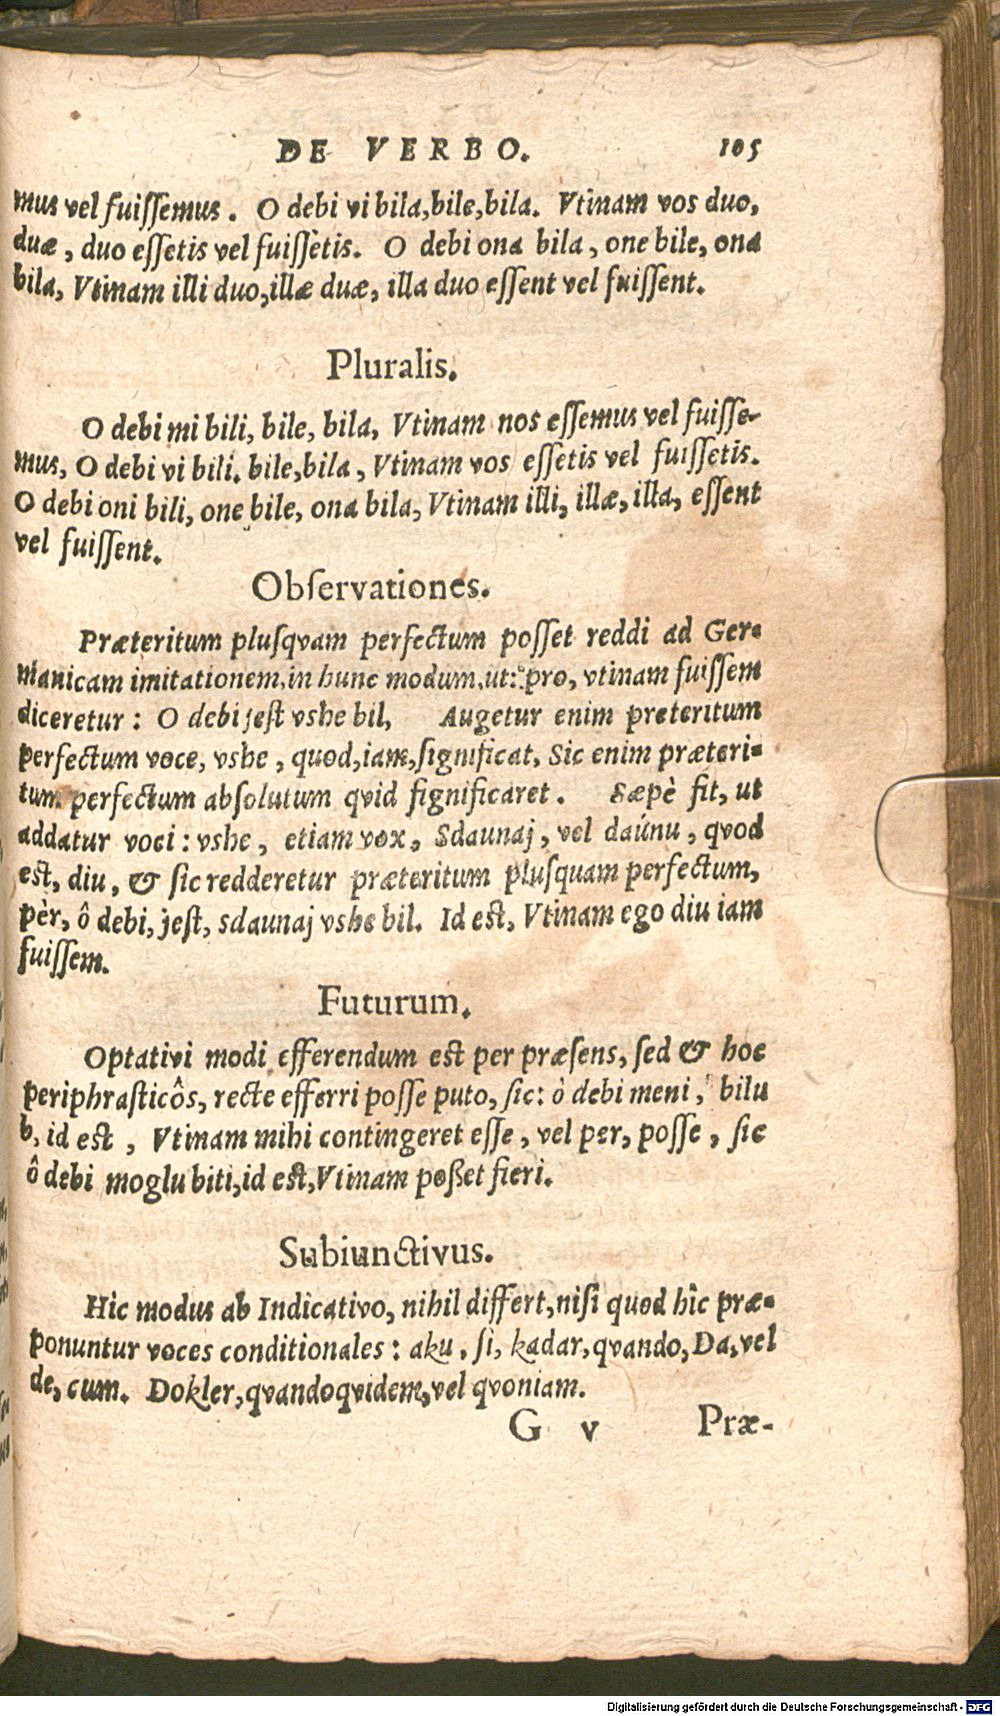 DE VERBO. 105
mus vel fuiſſemus. O debi vi bila, bile, bila. Vtinam vos duo,
duæ, duo eſſetis vel fuiſſètis. O debi ona bila, one bile, ona
bila, Vtinam illi duo, illæ duæ, illa duo eſſent vel fuiſſent.
Pluralis.
O debi mi bili, bile, bila, Vtinam nos eſſemus vel fuiſſe-
mus, O debi vi bili. bile, bila, Vtinam vos eſſetis vel fuiſſetis.
O debi oni bili, one bile, ona bila, Vtinam illi, illæ, illa, eſſent
vel fuiſſent.
Obſervationes.
Præteritum pluſqvam perfectum poſſet reddi ad Ger-
manicam imitationem, in hunc modum, ut: pro, vtinam fuiſſem
diceretur: O debi jeſt vshe bil, Augetur enim preteritum
perfectum voce, vshe, quod, iam, ſignificat, Sic enim præteri-
tum perfectum abſolutum qvid ſignificaret. Sæpè fit, ut
addatur voci: vshe, etiam vox, Sdaunaj, vel daúnu, qvod
est, diu, & ſic redderetur præteritum pluſquam perfectum,
pèr, ô debi, jeſt, sdaunaj vshe bil. Id est, Vtinam ego diu iam
fuiſſem.
Futurum.
Optativi modi efferendum est per præſens, ſed & hoc
periphraſticôs, recte efferri poſſe puto, ſic: ò debi meni, bilu
b, id est, Vtinam mihi contingeret eſſe, vel per, poſſe, ſic
ô debi moglu biti, id est, Vtinam poßet fieri.
Subiunctivus.
Hic modus ab Indicativo, nihil differt, niſi quod hîc præ-
ponuntur voces conditionales: aku, ſi, kadar, qvando, Da, vel
de, cum. Dokler, qvandoqvidem, vel qvoniam.
G v Præ-
Digitalisierung gefördert durch die Deutsche Forschungsgemeinschaft - DFG